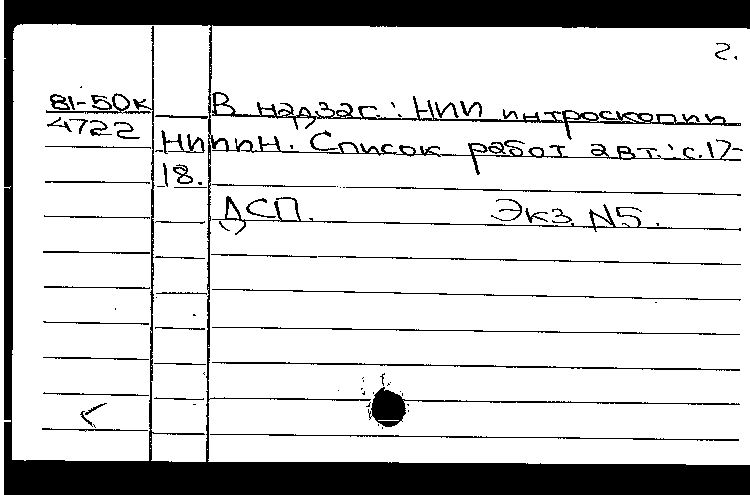 2.
81-50к В надзаг.: НИИ интроскопии
4722 НИИИН. Список работ авт.: с.17-
18.
ДСП. Экз. N5.